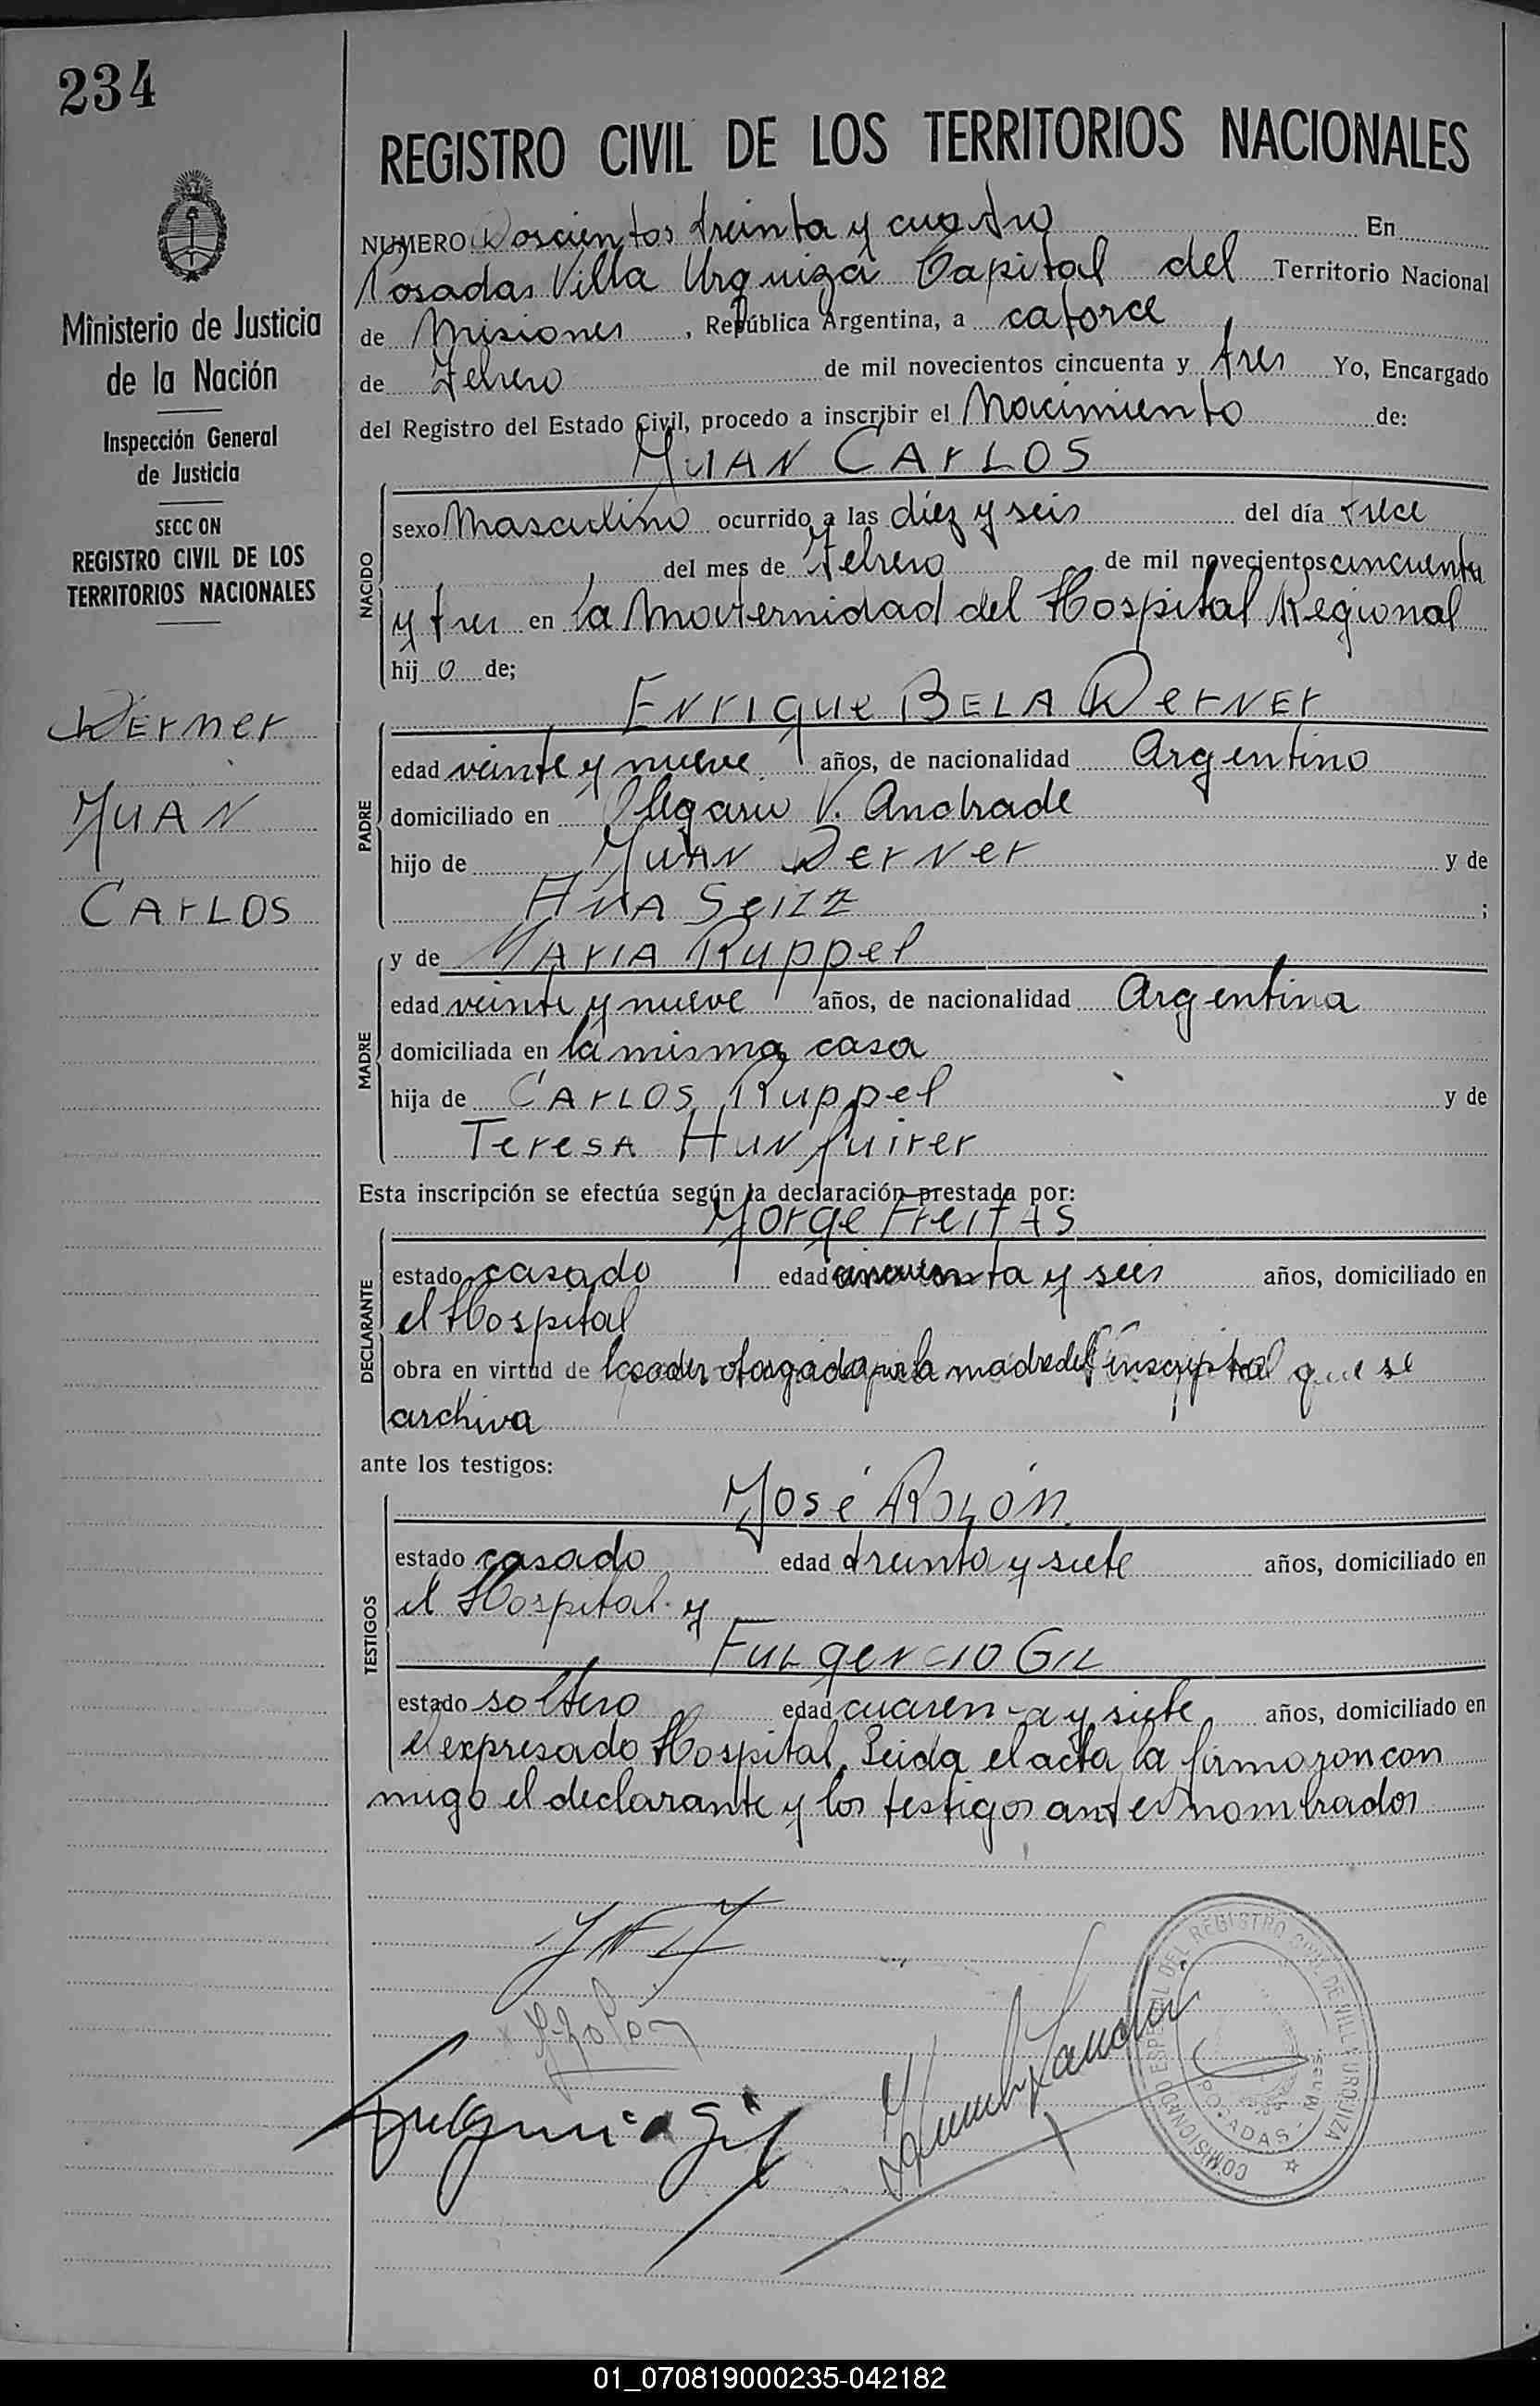 234
Ministerio de Justicia
de la Nación
Inspección General
de Justicia
SECC ON
REGISTRO CIVIL DE LOS
TERRITORIOS NACIONALES
Derner
JUAN
CARLOS
REGISTRO CIVIL DE LOS TERRITORIOS NACIONALES
NUMERO Doscientos treinta y cuatro En
Posadas Villa Urquiza Capital del Territorio Nacional
de Misiones, República Argentina, a catorce
de Febrero de mil novecientos cincuenta y tres Yo, Encargado
del Registro del Estado Civil, procedo a inscribir el Nacimiento de:
JUAN CARLOS
NACIDO
sexo Masculino ocurrido a las diez y seis del día trece
del mes de Febrero de mil novecientos cincuenta
y tres en la Maternidad del Hospital Regional
hij o de;
Enrique BELA Derner
PADRE
edad veinte y nueve años, de nacionalidad Argentino
domiciliado en Olegario V. Andrade
hijo de JUAN Derner y de
ANA Seitz ;
y de MARIA Ruppel
MADRE
edad veinte y nueve años, de nacionalidad Argentina
domiciliada en la misma casa
hija de CARLOS Ruppel y de
Teresa
Esta inscripción se efectúa según la declaración prestada por:
Jorge FreitAS
DECLARANTE
estado casado edad cincuenta y seis años, domiciliado en
el Hospital
obra en virtud de otorgada por la madre del que se
archiva
ante los testigos:
José Rolón
TESTIGOS
estado casado edad treinta y siete años, domiciliado en
el Hospital y
FULgenCIO GIL
estado soltero edad cuarenta y siete años, domiciliado en
el expresado Hospital. Leida el acta la firmaron con
migo el declarante y los testigos antes nombrados
Fulgencio Gil
COMISIONADO ESPECIAL DEL REGISTRO CIVIL DE VILLA URQUIZA
POSADAS
01_070819000235-042182